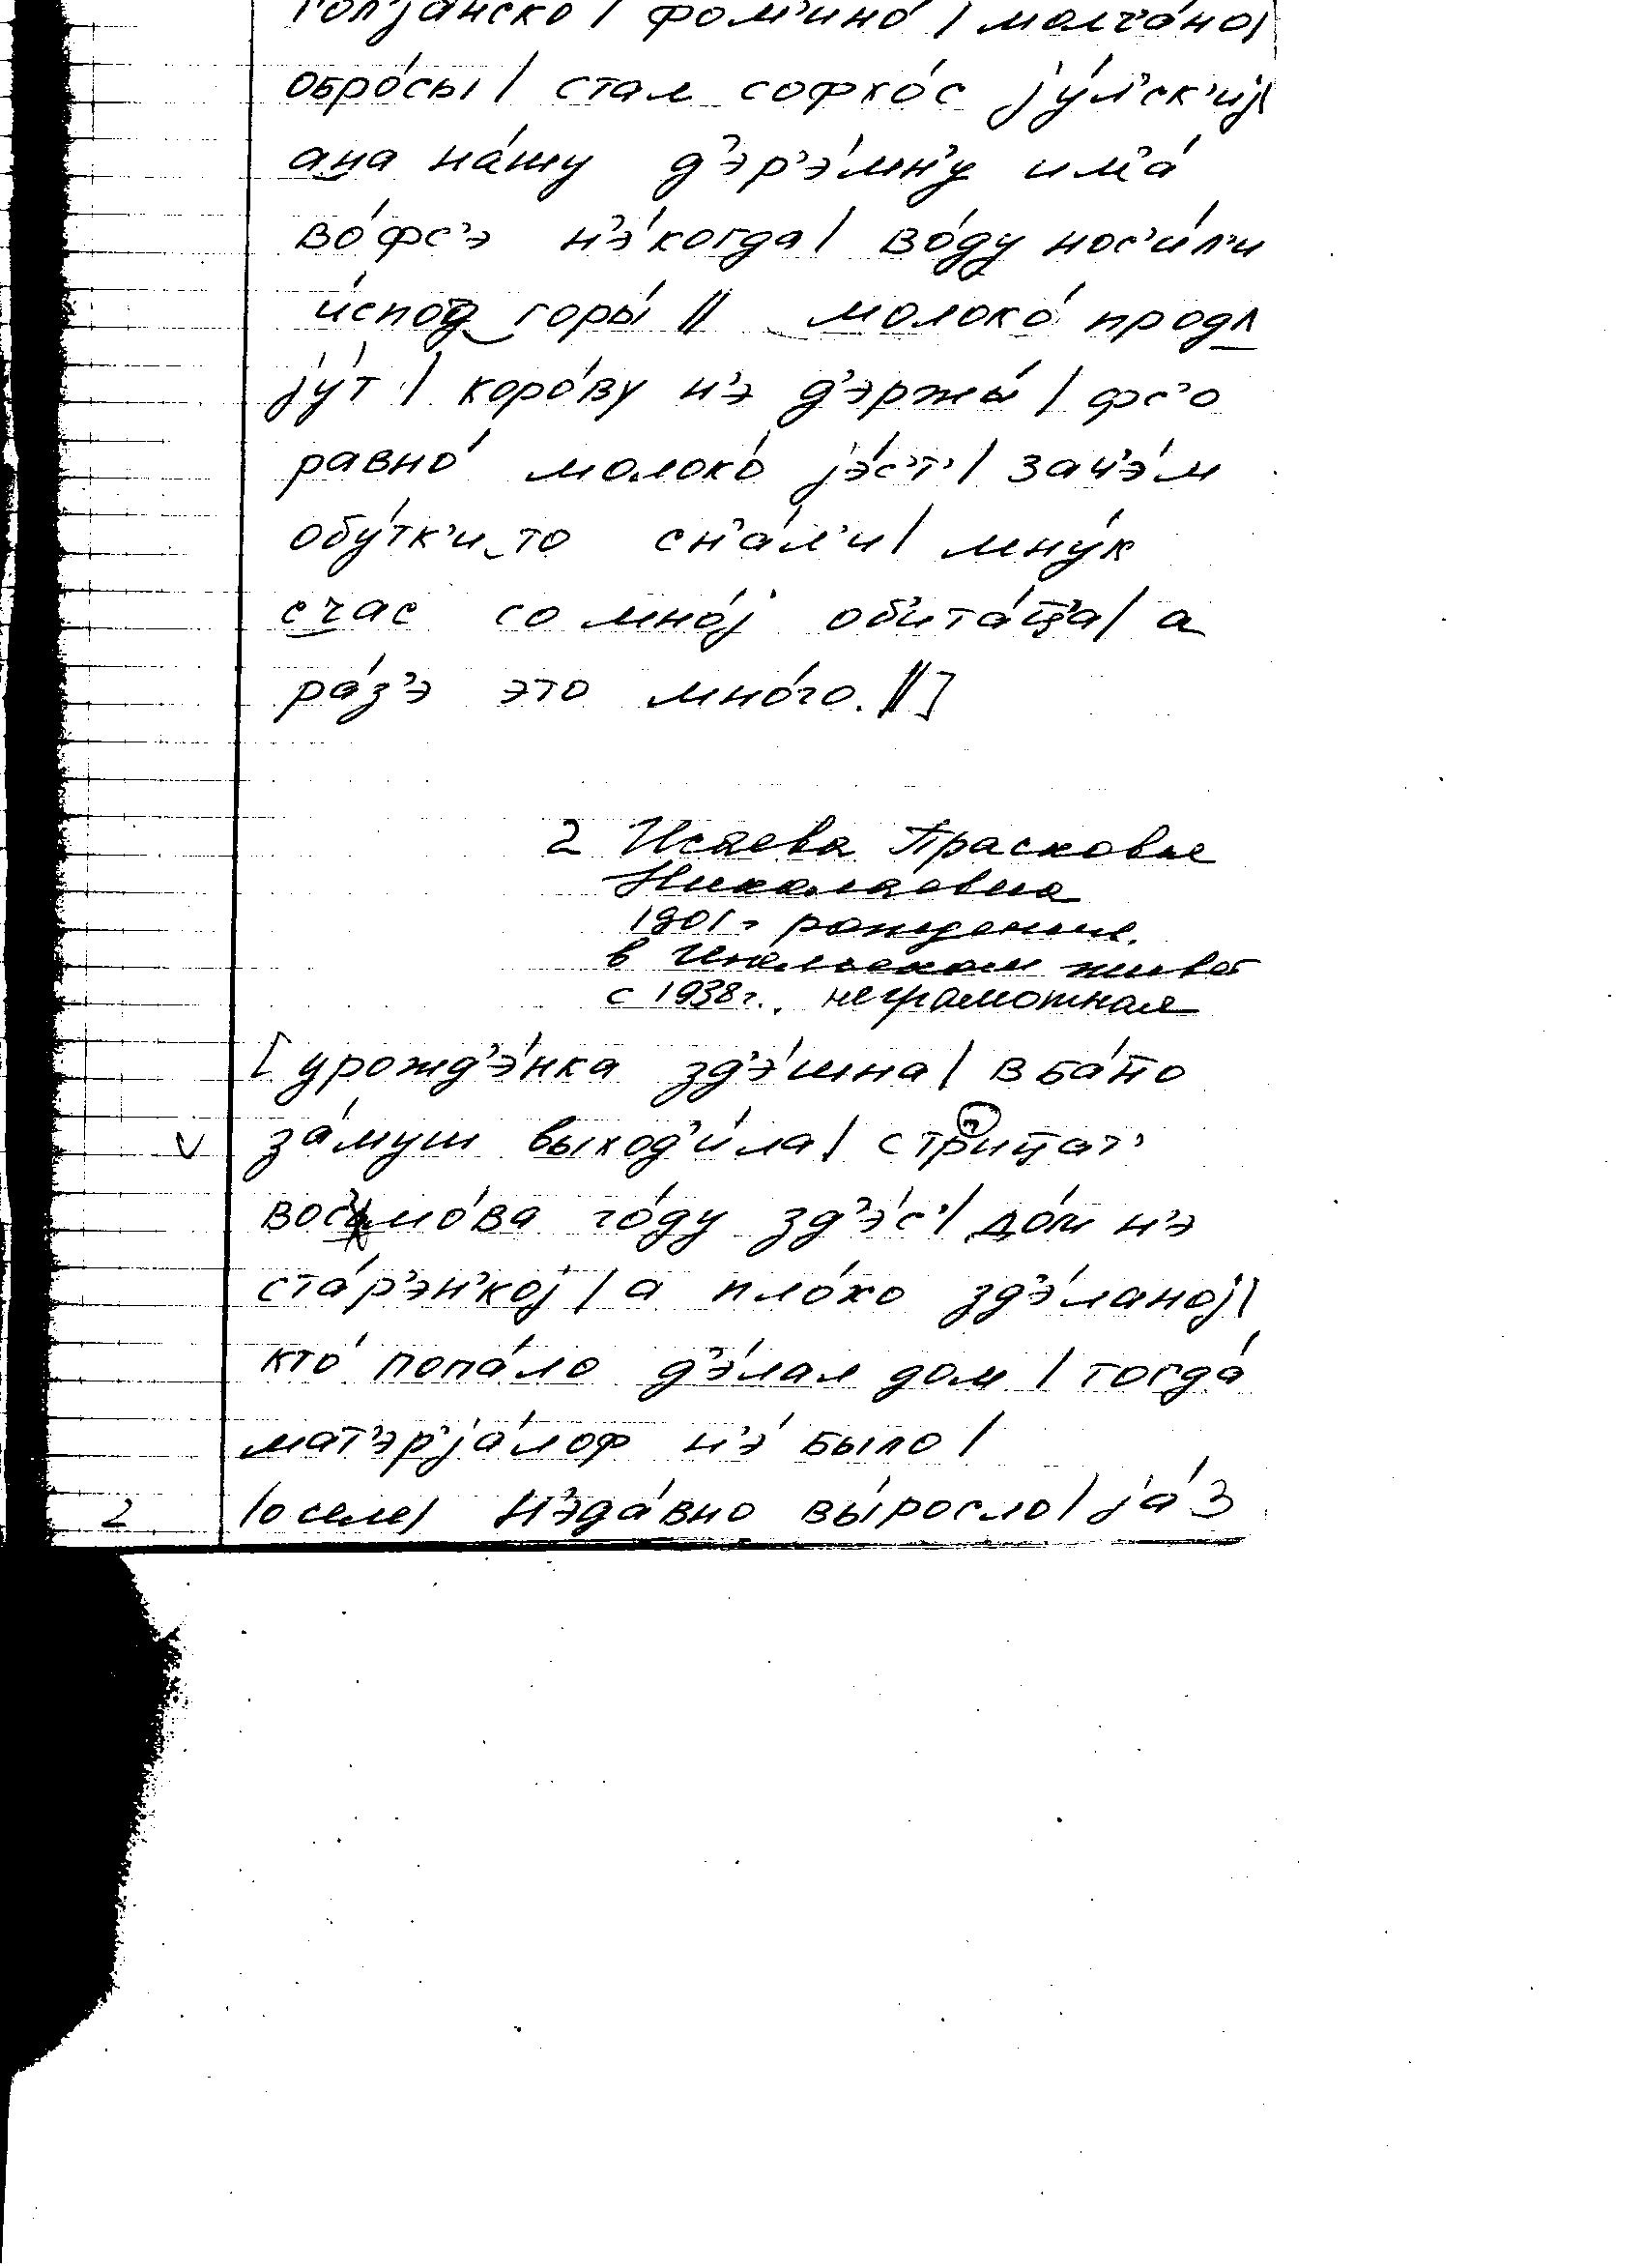 фом'ино́ / молча́но/
обро́сы / стал софхо́с jу́л'ск'иj/
а на на́шу д'эр'э́мн'у им'а́
во́фс'э н'э́когда / во́ду нос'и́л'и
и́спод горы́ // молоко́ прода
jу́т / коро́ву н'э д'эржы́ / фс'о
равно́ молоко́ jэ́с'т' / зач'э́м
обу́тк'и то сн'а́л'и / мну́к
счас со мно́j об'ита́ц'а / а
ра́з'э это мно́го. //]
2 Исаева Прасковья
Николаевна
1901 г рождения.
в живет
с 1938 г., неграмотная
[урожд'э́нка зд'э́шна / в ба́н'о
за́муш выход'и́ла / с трицат'
вос'мо́ва го́ду зд'э́с' / до́м н'э
ста́р'эн'коj / а пло́хо зд'э́ланоj /
кто́ попа́ло д'э́лал дом / тогда́
мат'эр'jа́лоф н'э́ было /
2 /о селе/ Н'эда́вно вы́росло / jа́ з